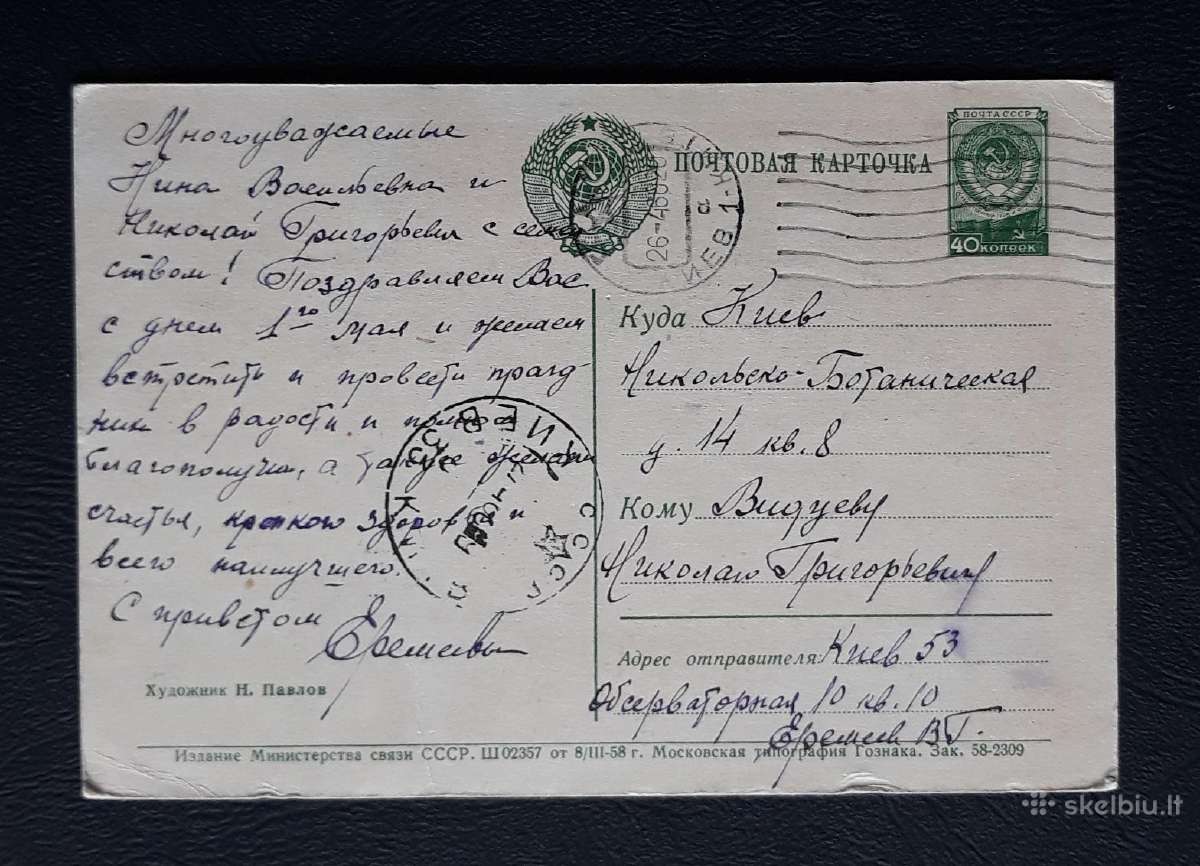 Многоуважаемые
Нина Васильевна и
Николай Григорьевич с семей
ством! Поздравляем Вас
с днем 1го мая и желаем
встретить и провести празд
ник в радости и полном
благополучии, а также желаем
счастья, крепкого здоровья и
всего наилучшего.
С приветом
Еремеевы
Художник Н. Павлов
ПОЧТОВАЯ КАРТОЧКА
ПОЧТА СССР
40 КОПЕЕК
ИЕВ 1-Й
КИЕВ
СССР
Куда Киев
Никольско-Ботаническая
д. 14 кв. 8
Кому Видуеву
Николаю Григорьевичу
Адрес отправителя: Киев 53
Обсерваторная 10 кв. 10
Еремеев В.Г.
Издание Министерства связи СССР. Ш 02357 от 8/III-58 г. Московская типография Гознака. Зак. 58-2309
skelbiu.lt